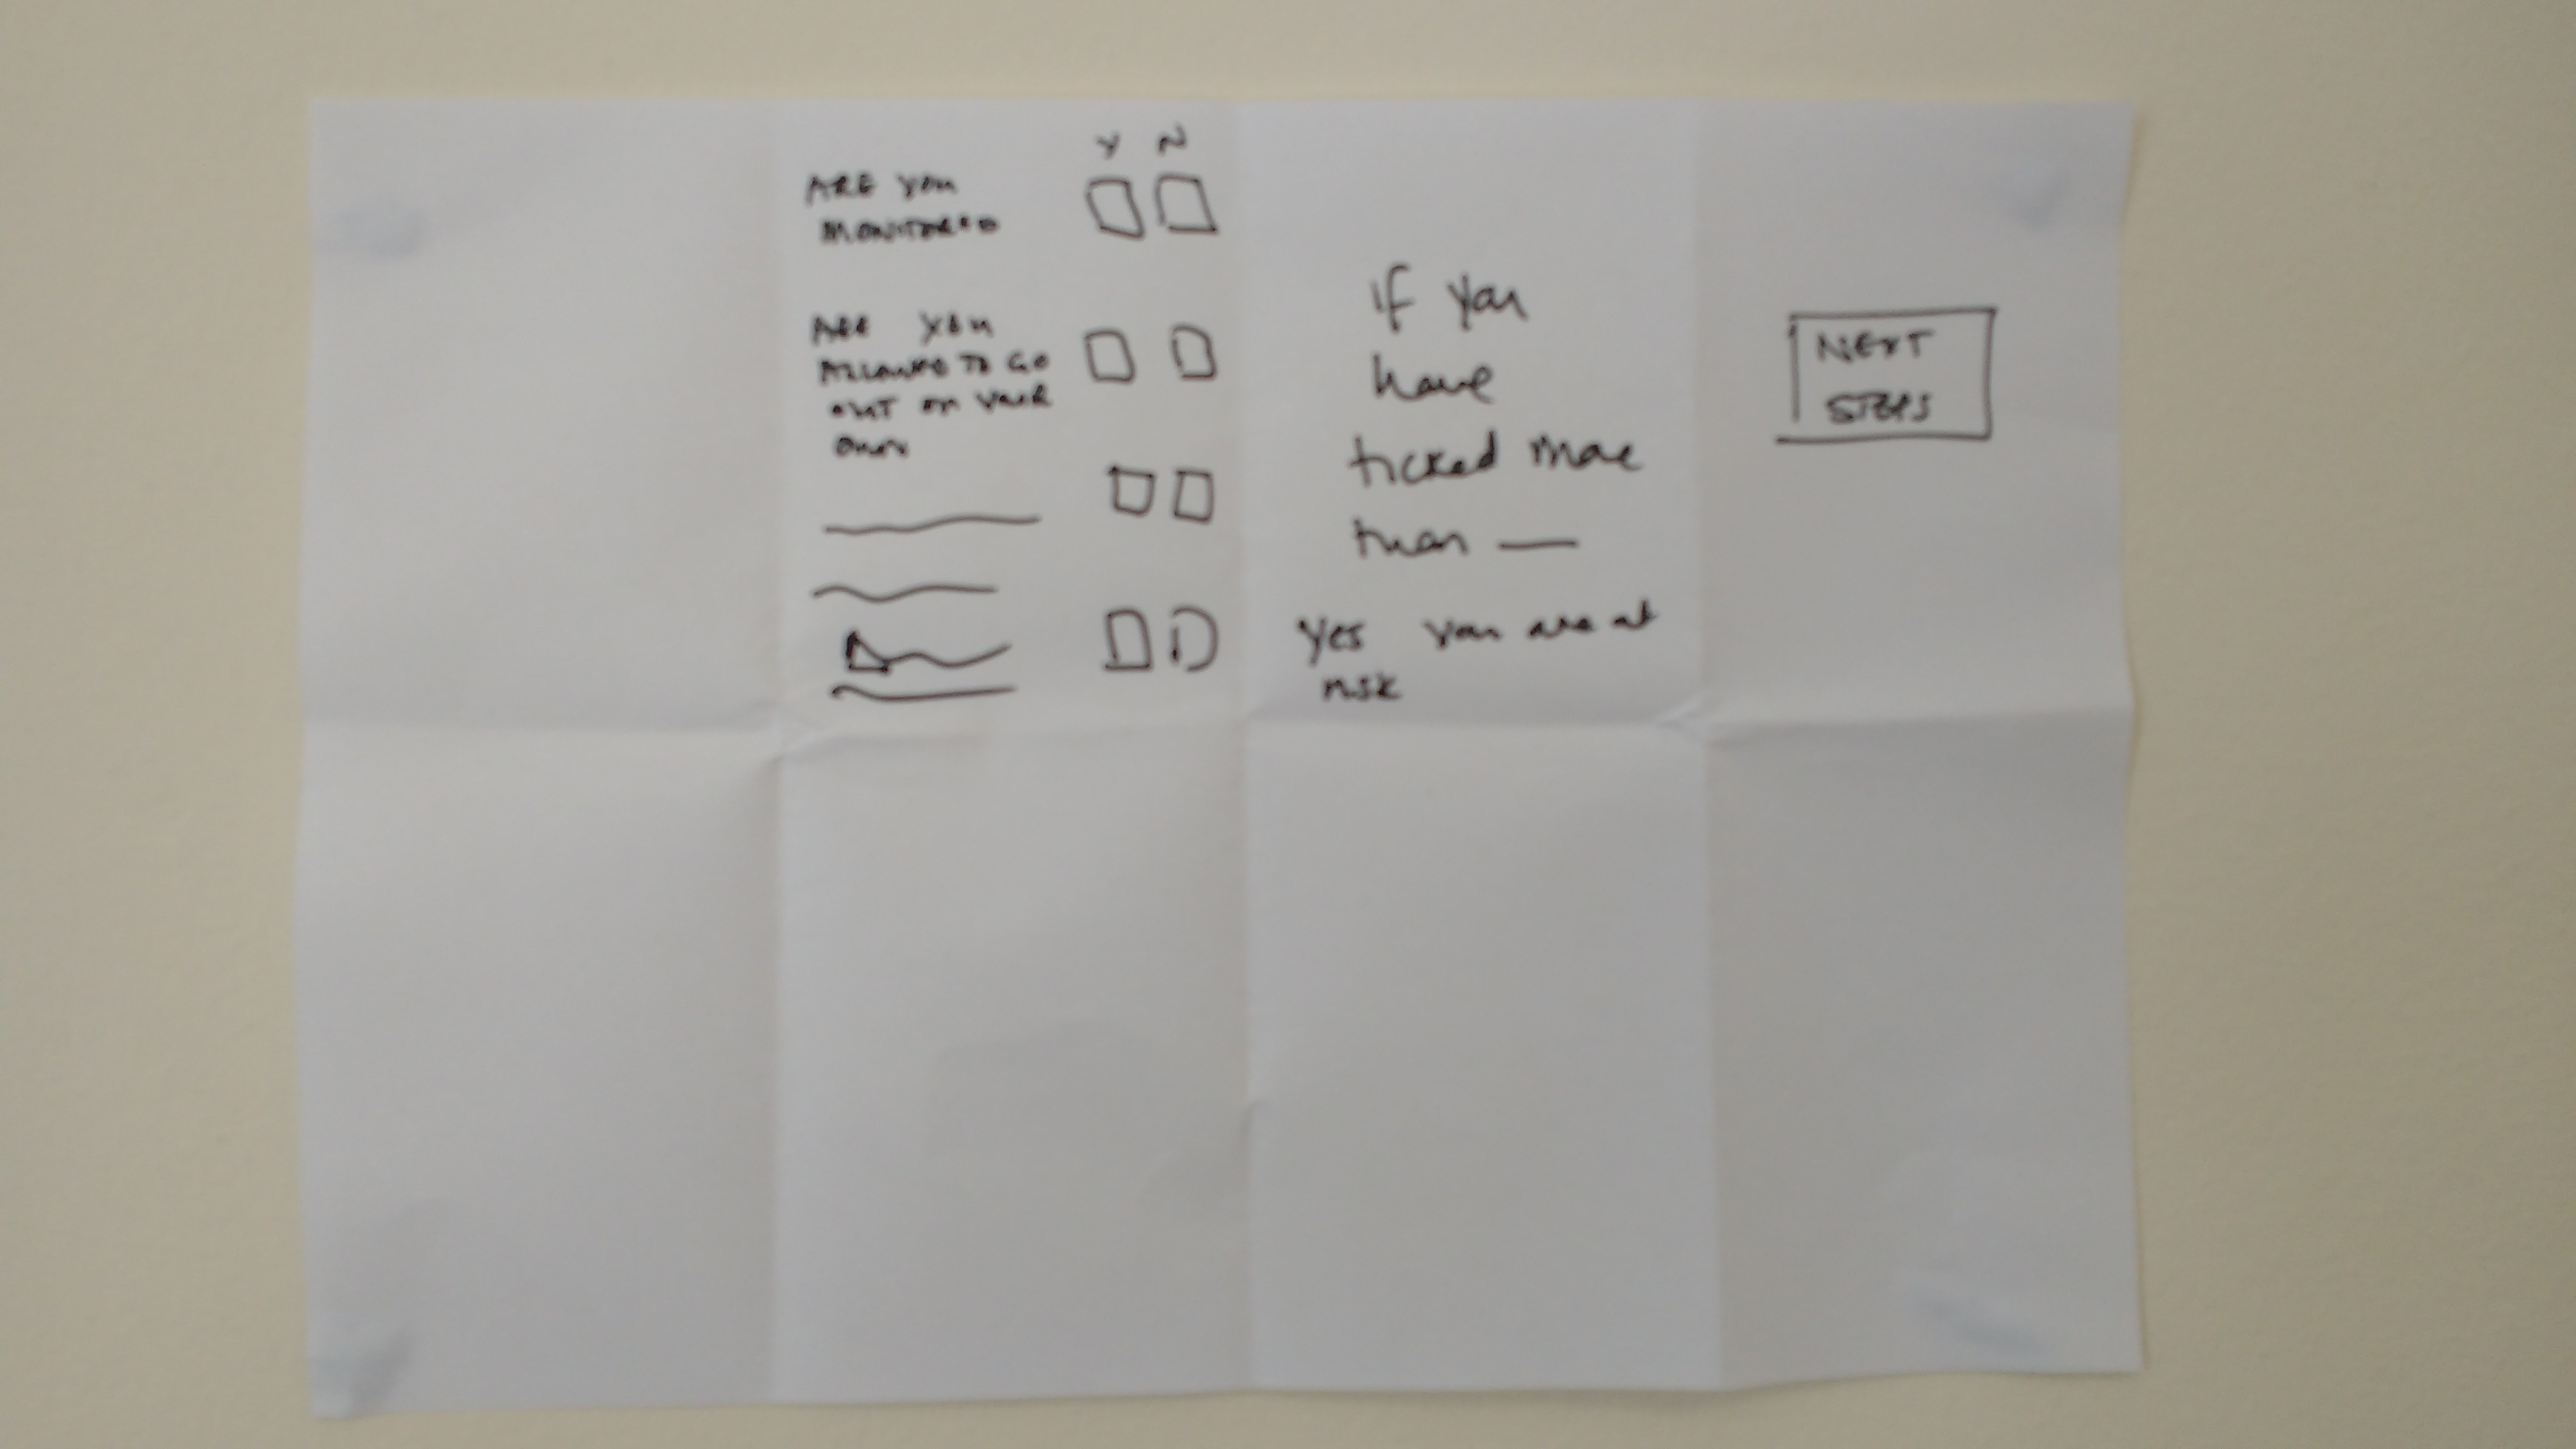 Y N
ARE YOU
MONITORED
ARE YOU
ALLOWED TO GO
OUT ON YOUR
OWN
if you
have
ticked more
than —
yes you are at
risk
NEXT
STEPS